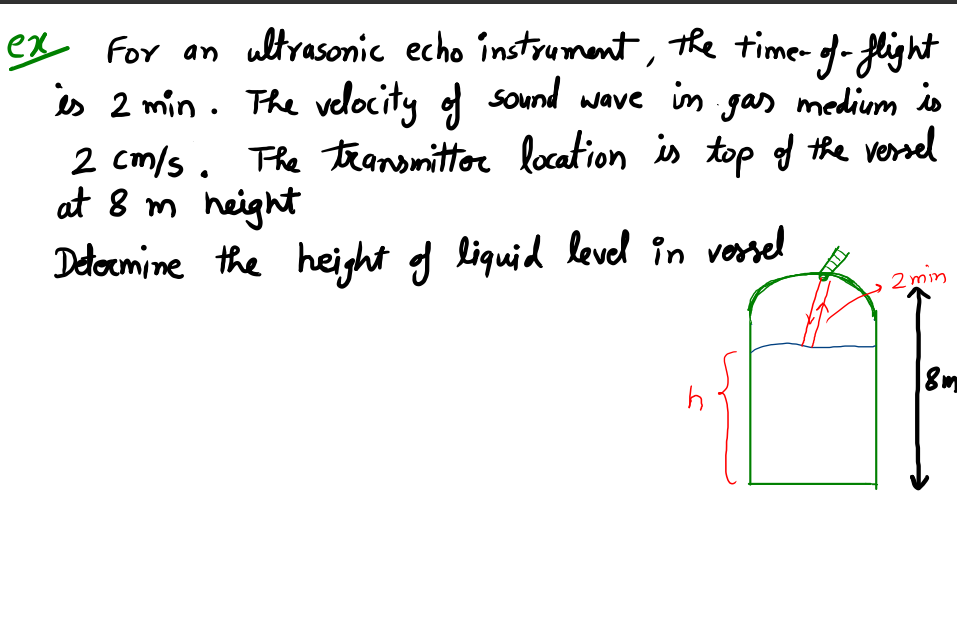 ex For an ultrasonic echo instrument, the time-of-flight
is 2 min. The velocity of sound wave in gas medium is
2 cm/s. The transmitter location is top of the vessel
at 8 m height
Determine the height of liquid level in vessel
2 min
8 m
h